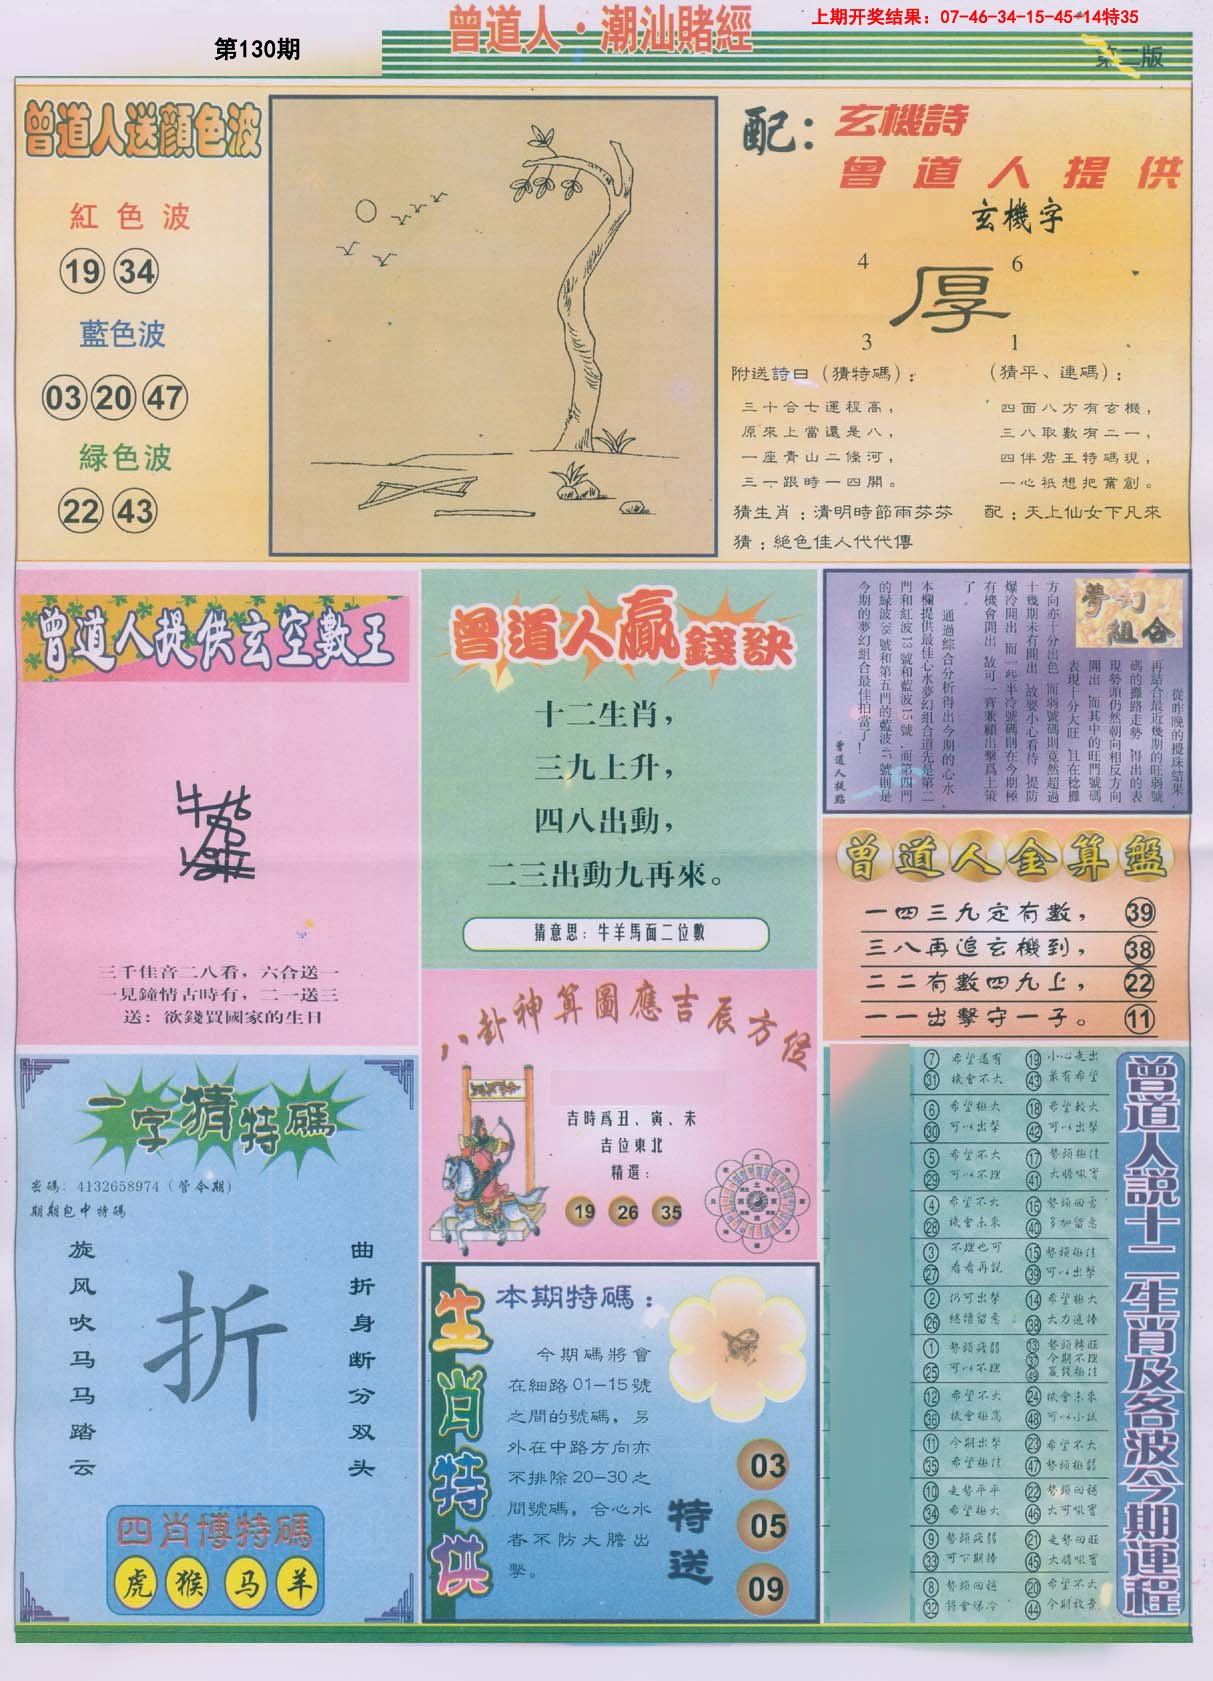 曾道人·潮汕賭經
上期开奖结果：07-46-34-15-45-14特35
第130期
第二版
曾道人送顔色波
紅色波
19 34
藍色波
03 20 47
緑色波
22 43
配：玄機詩
曾道人提供
玄機字
4 6
厚
3 1
附送詩曰（猜特碼）：
三十合七運程高，
原來上當還是八，
一座青山二條河，
三一跟時一四開。
（猜平、連碼）：
四面八方有玄機，
三八取數有二一，
四伴君王特碼現，
一心祇想把業創。
猜生肖：清明時節雨芬芬
配：天上仙女下凡來
猜：絕色佳人代代傳
曾道人提供玄空數王
三千佳音二八看，六合送一
一見鐘情古時有，二一送三
送：欲錢買國家的生日
曾道人贏錢訣
十二生肖，
三九上升，
四八出動，
二三出動九再來。
猜意思：牛羊馬面二位數
夢幻組合
從昨晚的攪珠結果，
再結合最近幾期的旺弱號
碼的攤路走勢，得出的表
現勢頭仍然朝向相反方向
開出，而其中的旺門號碼
表現十分大旺，且在稔攤
方向亦十分出色，而弱號碼則竟然超過
十幾期未有開出，故要小心看待，提防
爆冷開出，而一些半冷號碼則在今期極
有機會開出，故可一齊兼顧出擊爲上策
了。
通過綜合分析得出今期的心水，
本欄提供最佳心水夢幻組合道先是第二
門和紅波13號和藍波15號，而第四門
的緑波38號和第五門的藍波47號則是
今期的夢幻組合最佳拍當了！
曾道人提點
曾道人金算盤
一四三九定有數， 39
三八再追玄機到， 38
二二有數四九上， 22
一一出擊守一子。 11
八卦神算圖應吉辰方位
吉時爲丑、寅、未
吉位東北
精選：
19 26 35
一字猜特碼
密碼：4132658974（管今期）
期期包中特碼
旋风吹马马踏云
折
曲折身断分双头
四肖博特碼
虎 猴 马 羊
生肖特供
本期特碼：
今期碼將會
在細路01-15號
之間的號碼，另
外在中路方向亦
不排除20-30之
間號碼，合心水
者不防大膽出
擊。
特送
03
05
09
曾道人說十二生肖及各波今期運程
7 希望還有 19 小心走出
31 機會不大 43 最有希望
6 希望極大 18 希望較大
30 可以出擊 42 可以出擊
5 希望不大 17 勢頭極佳
29 可以不理 41 大膽吼實
4 希望不大 16 勢頭回雲
28 機會未來 40 多加留意
3 不理也可 15 勢頭極佳
27 看看再說 39 可以出擊
2 仍可出擊 14 希望極大
26 繼續留意 38 大力追捧
1 勢頭疲弱 13 勢頭轉旺
25 可以不理 37 今期不理
49 贏錢極佳
12 希望不大 24 機會未來
36 機會極高 48 可以小試
11 今期出擊 23 希望不大
35 希望極佳 47 勢頭極弱
10 走勢平平 22 勢頭回穩
34 希望極大 46 大可吼實
9 勢頭疲弱 21 走勢回旺
33 可下期捧 45 大膽吼實
8 勢頭回穩 20 希望不大
32 將會爆冷 44 今期放棄